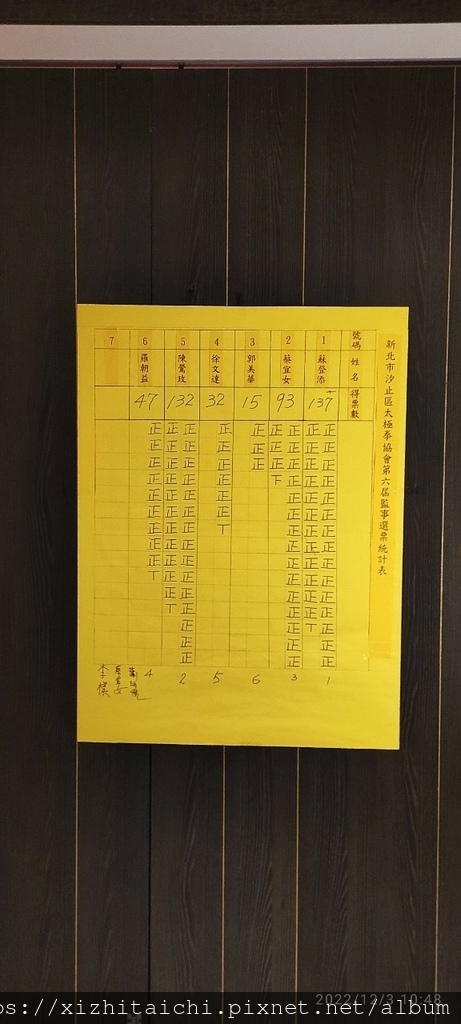 新北市汐止區太極拳協會第六屆監事選票統計表
號碼 姓名 得票數
1 蘇登添 137
正正正正正正正正正正正正正正正
正正正正正正正正正正正正丅
1
2 蔡宜女 93
正正正正正正正正正正正正正正正
正正正下
3
3 郭美華 15
正正正
6
4 徐文達 32
正正正正正正丅
5
5 陳鶯玫 132
正正正正正正正正正正正正正正正
正正正正正正正正正正正丅
2
6 羅朝益 47
正正正正正正正正正丅
4
7
2022/12/3 10:48
ps://xizhitaichi.pixnet.net/album